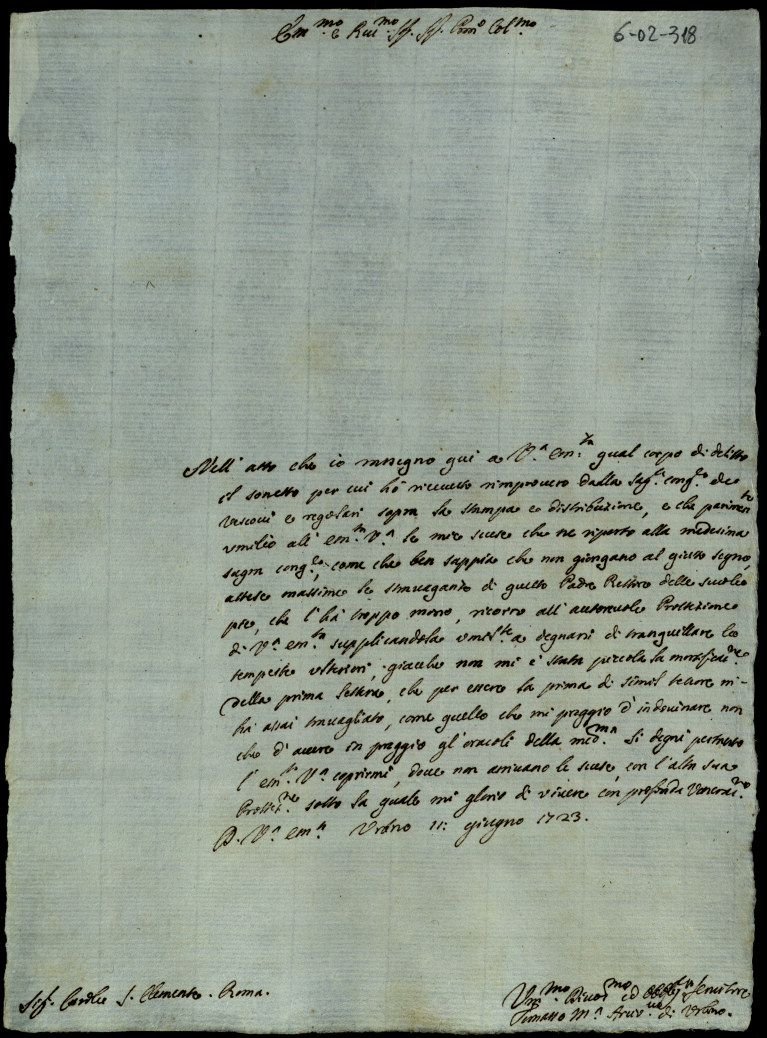 Em.mo e Rev.mo Sig. Sig. Pron. Col.mo
6-02-318
Nell' atto che io rassegno qui a V.a Em.za qual corpo di delitto
il sonetto per cui hò ricevuto rimprovero dalla Sag.a Cong.e de
Vescovi e regolari sopra la stampa e distribuzione, e che parimente
umilio all' Em.za V.a le mie scuse che ne riporto alla medesima
sagra Cong.e, come che ben sappia che non giongano al giusto segno,
attese massime le stravaganze di questo Padre Rettore delle scuole
pie, che l'hà troppo mosso, ricorro all' autorevole Protezzione
di V.a Em.za supplicandola umil.te a degnarsi di tranquillare le
tempeste ulteriori, giacche non mi è stata piccola la mortificaz.ne
della prima lettera, che per essere la prima di simil tenore mi
hà assai travagliato, come quello che mi preggio d'indovinare non
che d'avere in preggio gl'oracoli della med.ma Si degni pertanto
l'Em.za V.a coprirmi, dove non arrivano le scuse, con l'alta sua
Protez.ne sotto la quale mi glorio di vivere con profonda veneraz.ne
D. V.a Em.za Urbino 11: giugno 1723.
Sig. Cardle S. Clemente. Roma.
Um.mo Divot.mo ed Obblig. Servitore
Tomasso M.a Arciv.vo di Urbino.